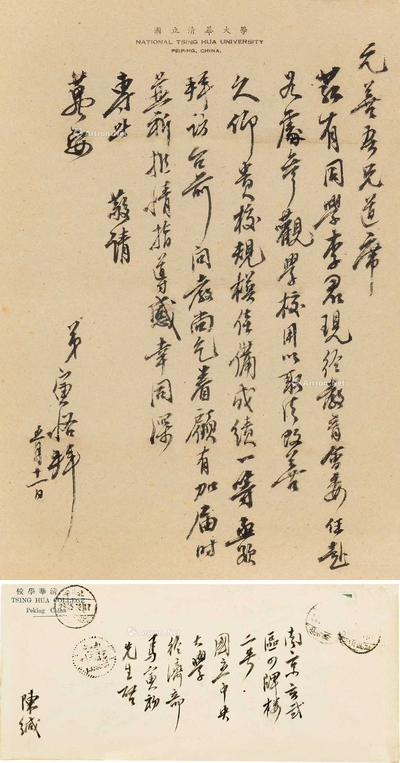 國立清華大學
NATIONAL TSING HUA UNIVERSITY
PEIPING, CHINA.
元善吾兄道席
茲有同學李君現經教育會委任赴
各處參觀學校用以取法改善
久仰貴校規模佳備成績一等並擬
拜訪台前問教尚乞眷顧有加屆時
並祈推情指導感幸同深
專此 敬請
安
弟寅恪拜
五月十一日
校學華清
TSING HUA COLLEGE
Peking China
南京玄武
區四牌樓
二号
國立中央
大學
經濟部
馬寅初
先生啟
陳緘